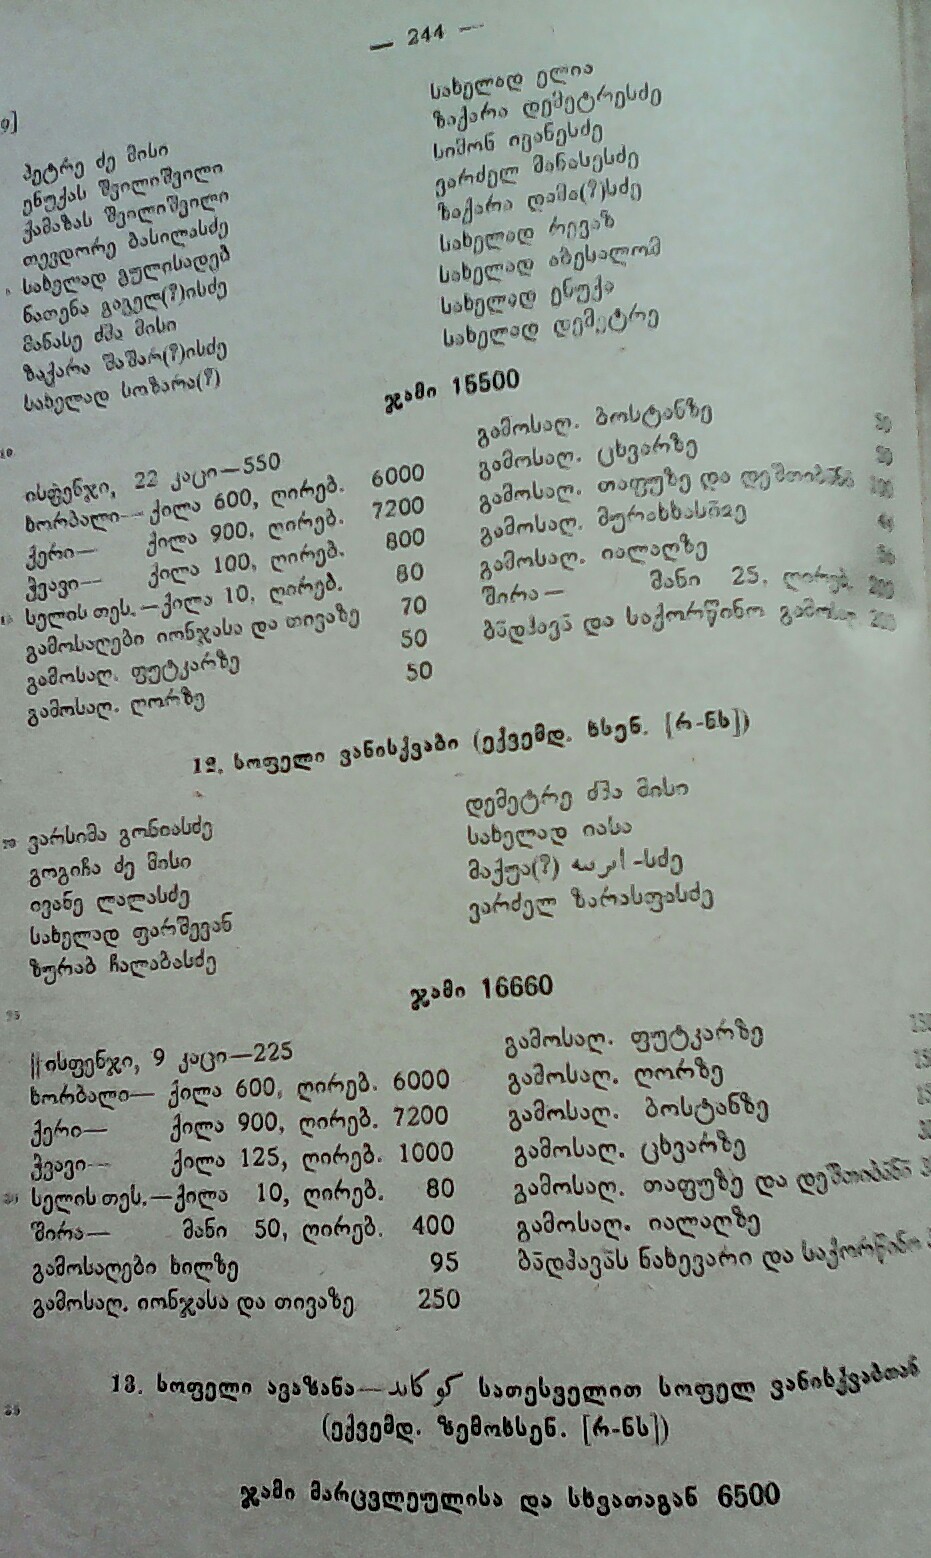 — 244 —
პეტრე ძე მისი
ენუქას შვილიშვილი
ქამაზას შვილიშვილი
თევდორე ბასილასძე
სახელად გულისადებ
ნათენა გოგელ(?)ისძე
მანასე ძმა მისი
ზაქარა შაშარ(?)ისძე
სახელად სოზარა(?)
სახელად ელია
ზაქარა დემეტრესძე
სიმონ ივანესძე
ვარძელ მანასესძე
ზაქარა დამა(?)სძე
სახელად რევაზ
სახელად აბესალომ
სახელად ენუქა
სახელად დემეტრე
ჯამი 15500
ისფენჯი, 22 კაცი—550
ხორბალი— ქილა 600, ღირებ. 6000
ქერი— ქილა 900, ღირებ. 7200
ჭვავი— ქილა 100, ღირებ. 800
სელის თეს.—ქილა 10, ღირებ. 80
გამოსაღები იონჯასა და თივაზე 70
გამოსაღ. ფუტკარზე 50
გამოსაღ. ღორზე 50
გამოსაღ. ბოსტანზე 50
გამოსაღ. ცხვარზე
გამოსაღ. თაფუზე და დეშთიბანი
გამოსაღ. მურახხასიჲე
გამოსაღ. იალაღზე
შირა— მანი 25, ღირებ. 200
ბადჰავა და საქორწინო გამოსაღ.
12. სოფელი ვანისქვაბი (ექვემდ. ხსენ. [რ-ნს])
ვარსიმა გონიასძე
გოგიჩა ძე მისი
ივანე ლალასძე
სახელად ფარშევან
ზურაბ ჩალაბასძე
დემეტრე ძმა მისი
სახელად იასა
მაქუა(?) -სძე
ვარძელ ზარასფასძე
ჯამი 16660
||ისფენჯი, 9 კაცი—225
ხორბალი— ქილა 600, ღირებ. 6000
ქერი— ქილა 900, ღირებ. 7200
ჭვავი— ქილა 125, ღირებ. 1000
სელის თეს.—ქილა 10, ღირებ. 80
შირა— მანი 50, ღირებ. 400
გამოსაღები ხილზე 95
გამოსაღ. იონჯასა და თივაზე 250
გამოსაღ. ფუტკარზე
გამოსაღ. ღორზე
გამოსაღ. ბოსტანზე
გამოსაღ. ცხვარზე
გამოსაღ. თაფუზე და დეშთიბანი
გამოსაღ. იალაღზე
ბადჰავას ნახევარი და საქორწინო
13. სოფელი ავაზანა— სათესველით სოფელ ვანისქვაბთან
(ექვემდ. ზემოხსენ. [რ-ნს])
ჯამი მარცვლეულისა და სხვათაგან 6500